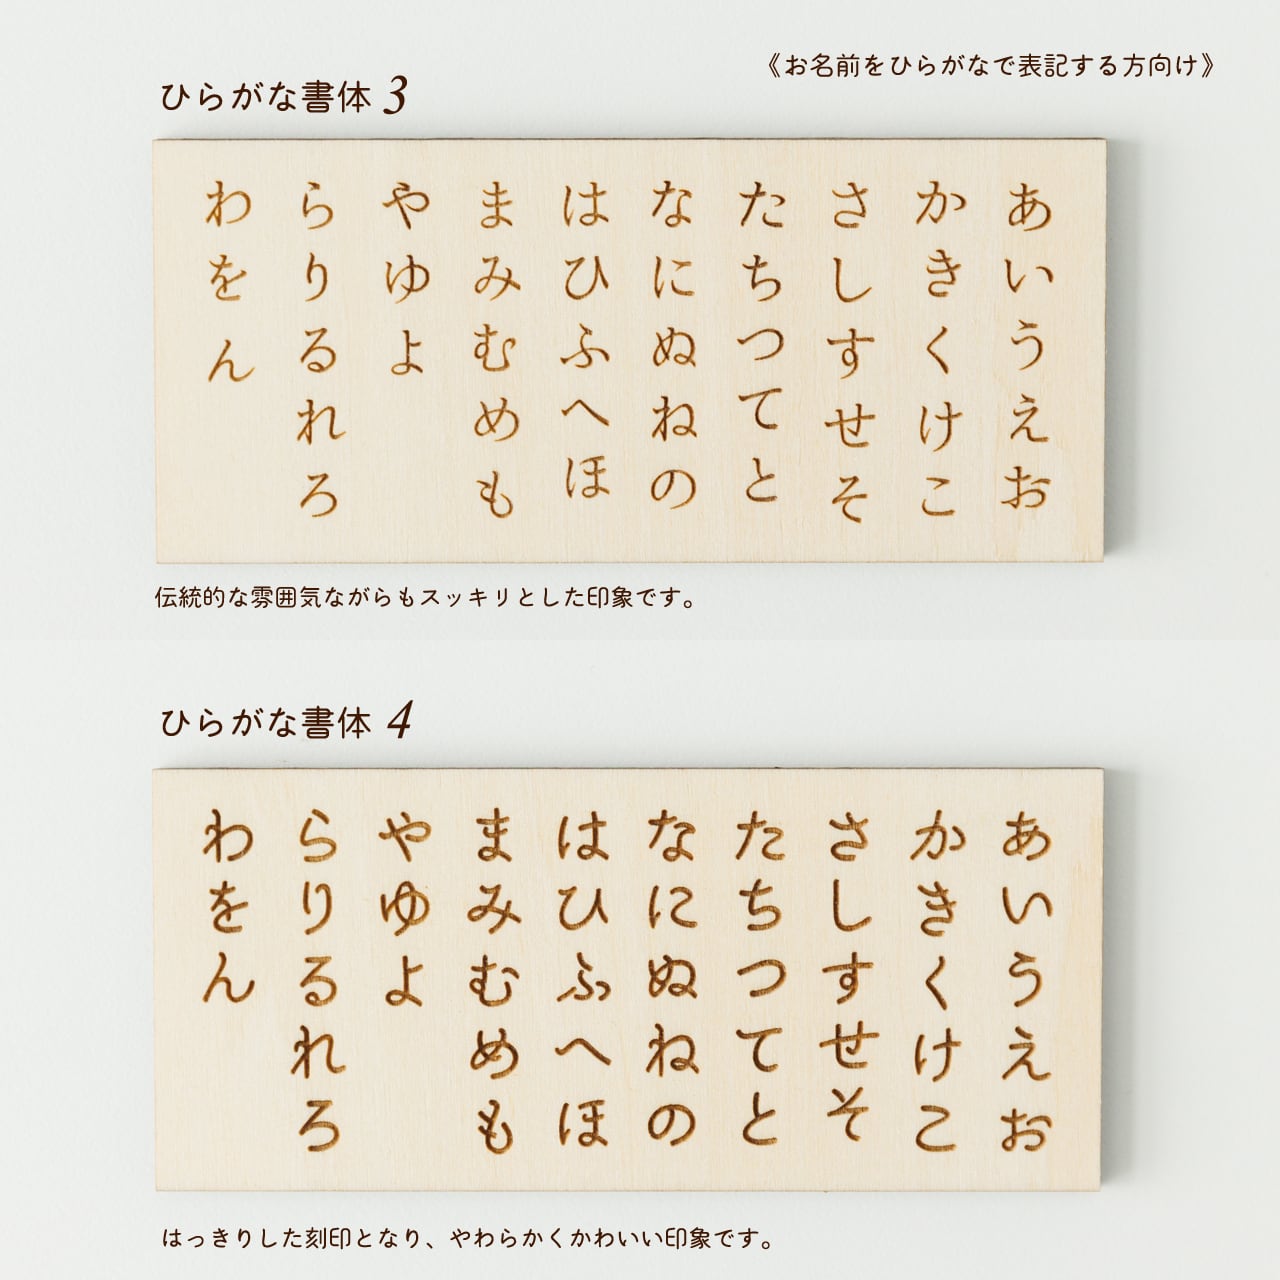 《お名前をひらがなで表記する方向け》
ひらがな書体 3
あいうえお
かきくけこ
さしすせそ
たちつてと
なにぬねの
はひふへほ
まみむめも
やゆよ
らりるれろ
わをん
伝統的な雰囲気ながらもスッキリとした印象です。
ひらがな書体 4
あいうえお
かきくけこ
さしすせそ
たちつてと
なにぬねの
はひふへほ
まみむめも
やゆよ
らりるれろ
わをん
はっきりした刻印となり、やわらかくかわいい印象です。